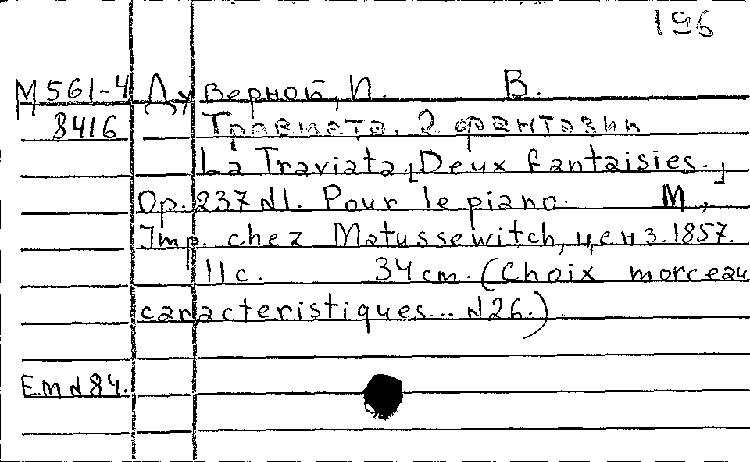 196
М 561-4 Дуверной, И. В.
8416 Травиата. 2 фантазии
La Traviata [Deux fantaisies.]
Op. 237 N1. Pour le piano. М.,
Imp. chez Matussewitch, ценз. 1857.
11 с. 34 см. (Choix morceau
caracteristiques... N26.)
Em N 84.